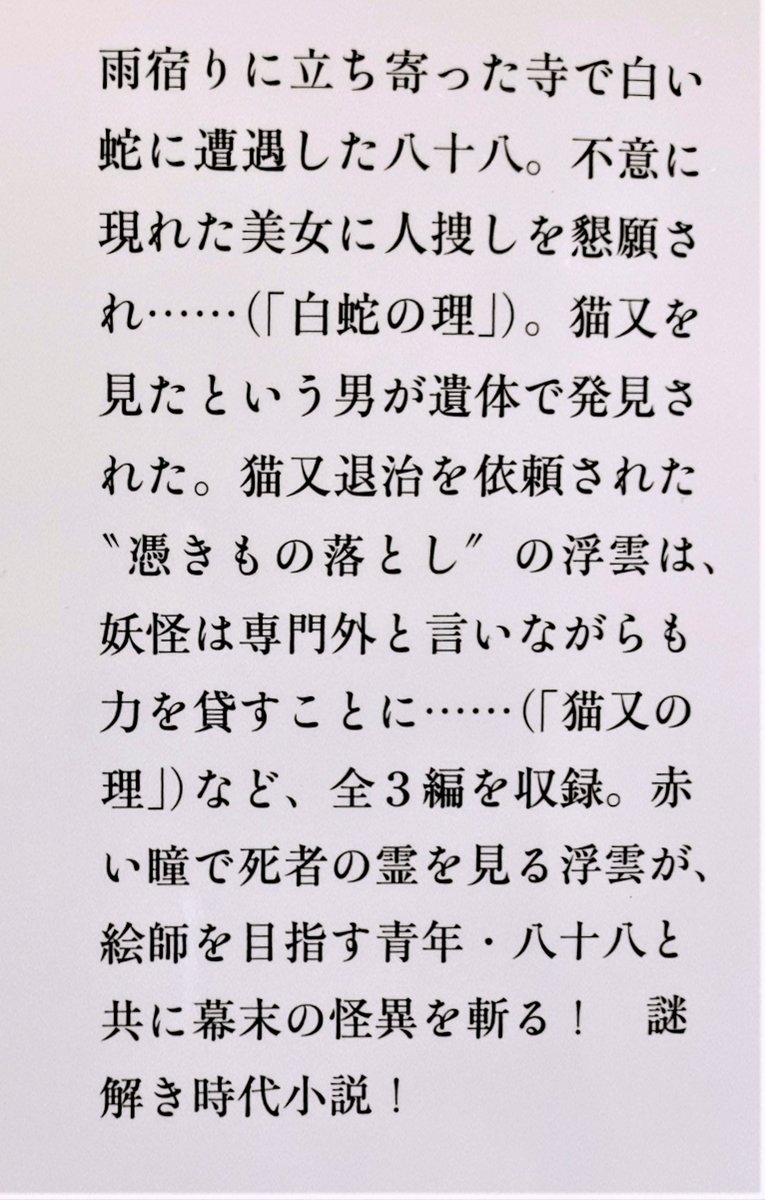 雨宿りに立ち寄った寺で白い
蛇に遭遇した八十八。不意に
現れた美女に人捜しを懇願さ
れ……(「白蛇の理」)。猫又を
見たという男が遺体で発見さ
れた。猫又退治を依頼された
〝憑きもの落とし〟の浮雲は、
妖怪は専門外と言いながらも
力を貸すことに……(「猫又の
理」)など、全３編を収録。赤
い瞳で死者の霊を見る浮雲が、
絵師を目指す青年・八十八と
共に幕末の怪異を斬る！　謎
解き時代小説！